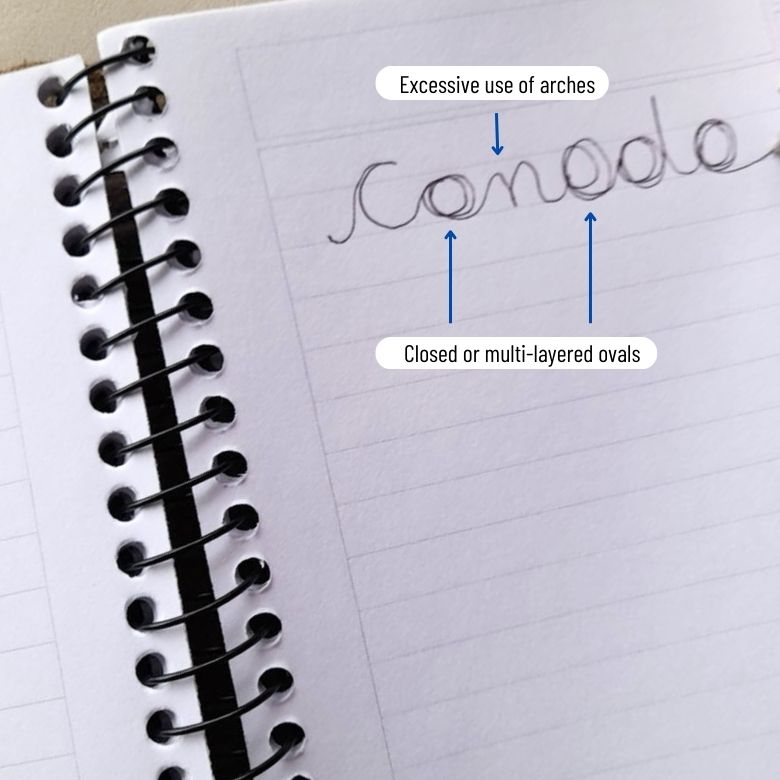 Excessive use of arches
Canada
Closed or multi-layered ovals